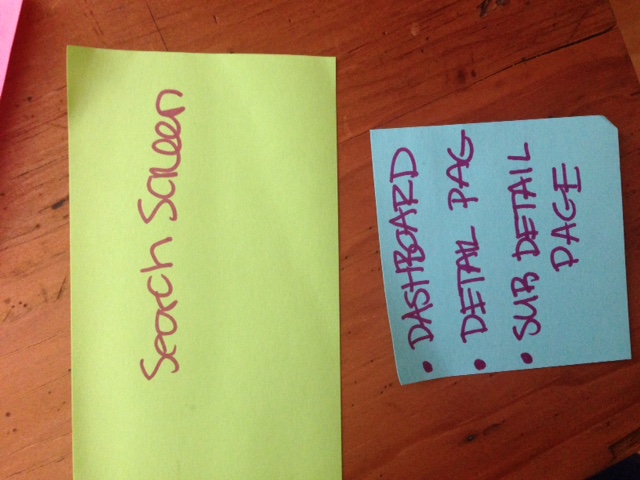 Search Screen
• DASHBOARD
• DETAIL PAG
• SUB DETAIL
PAGE